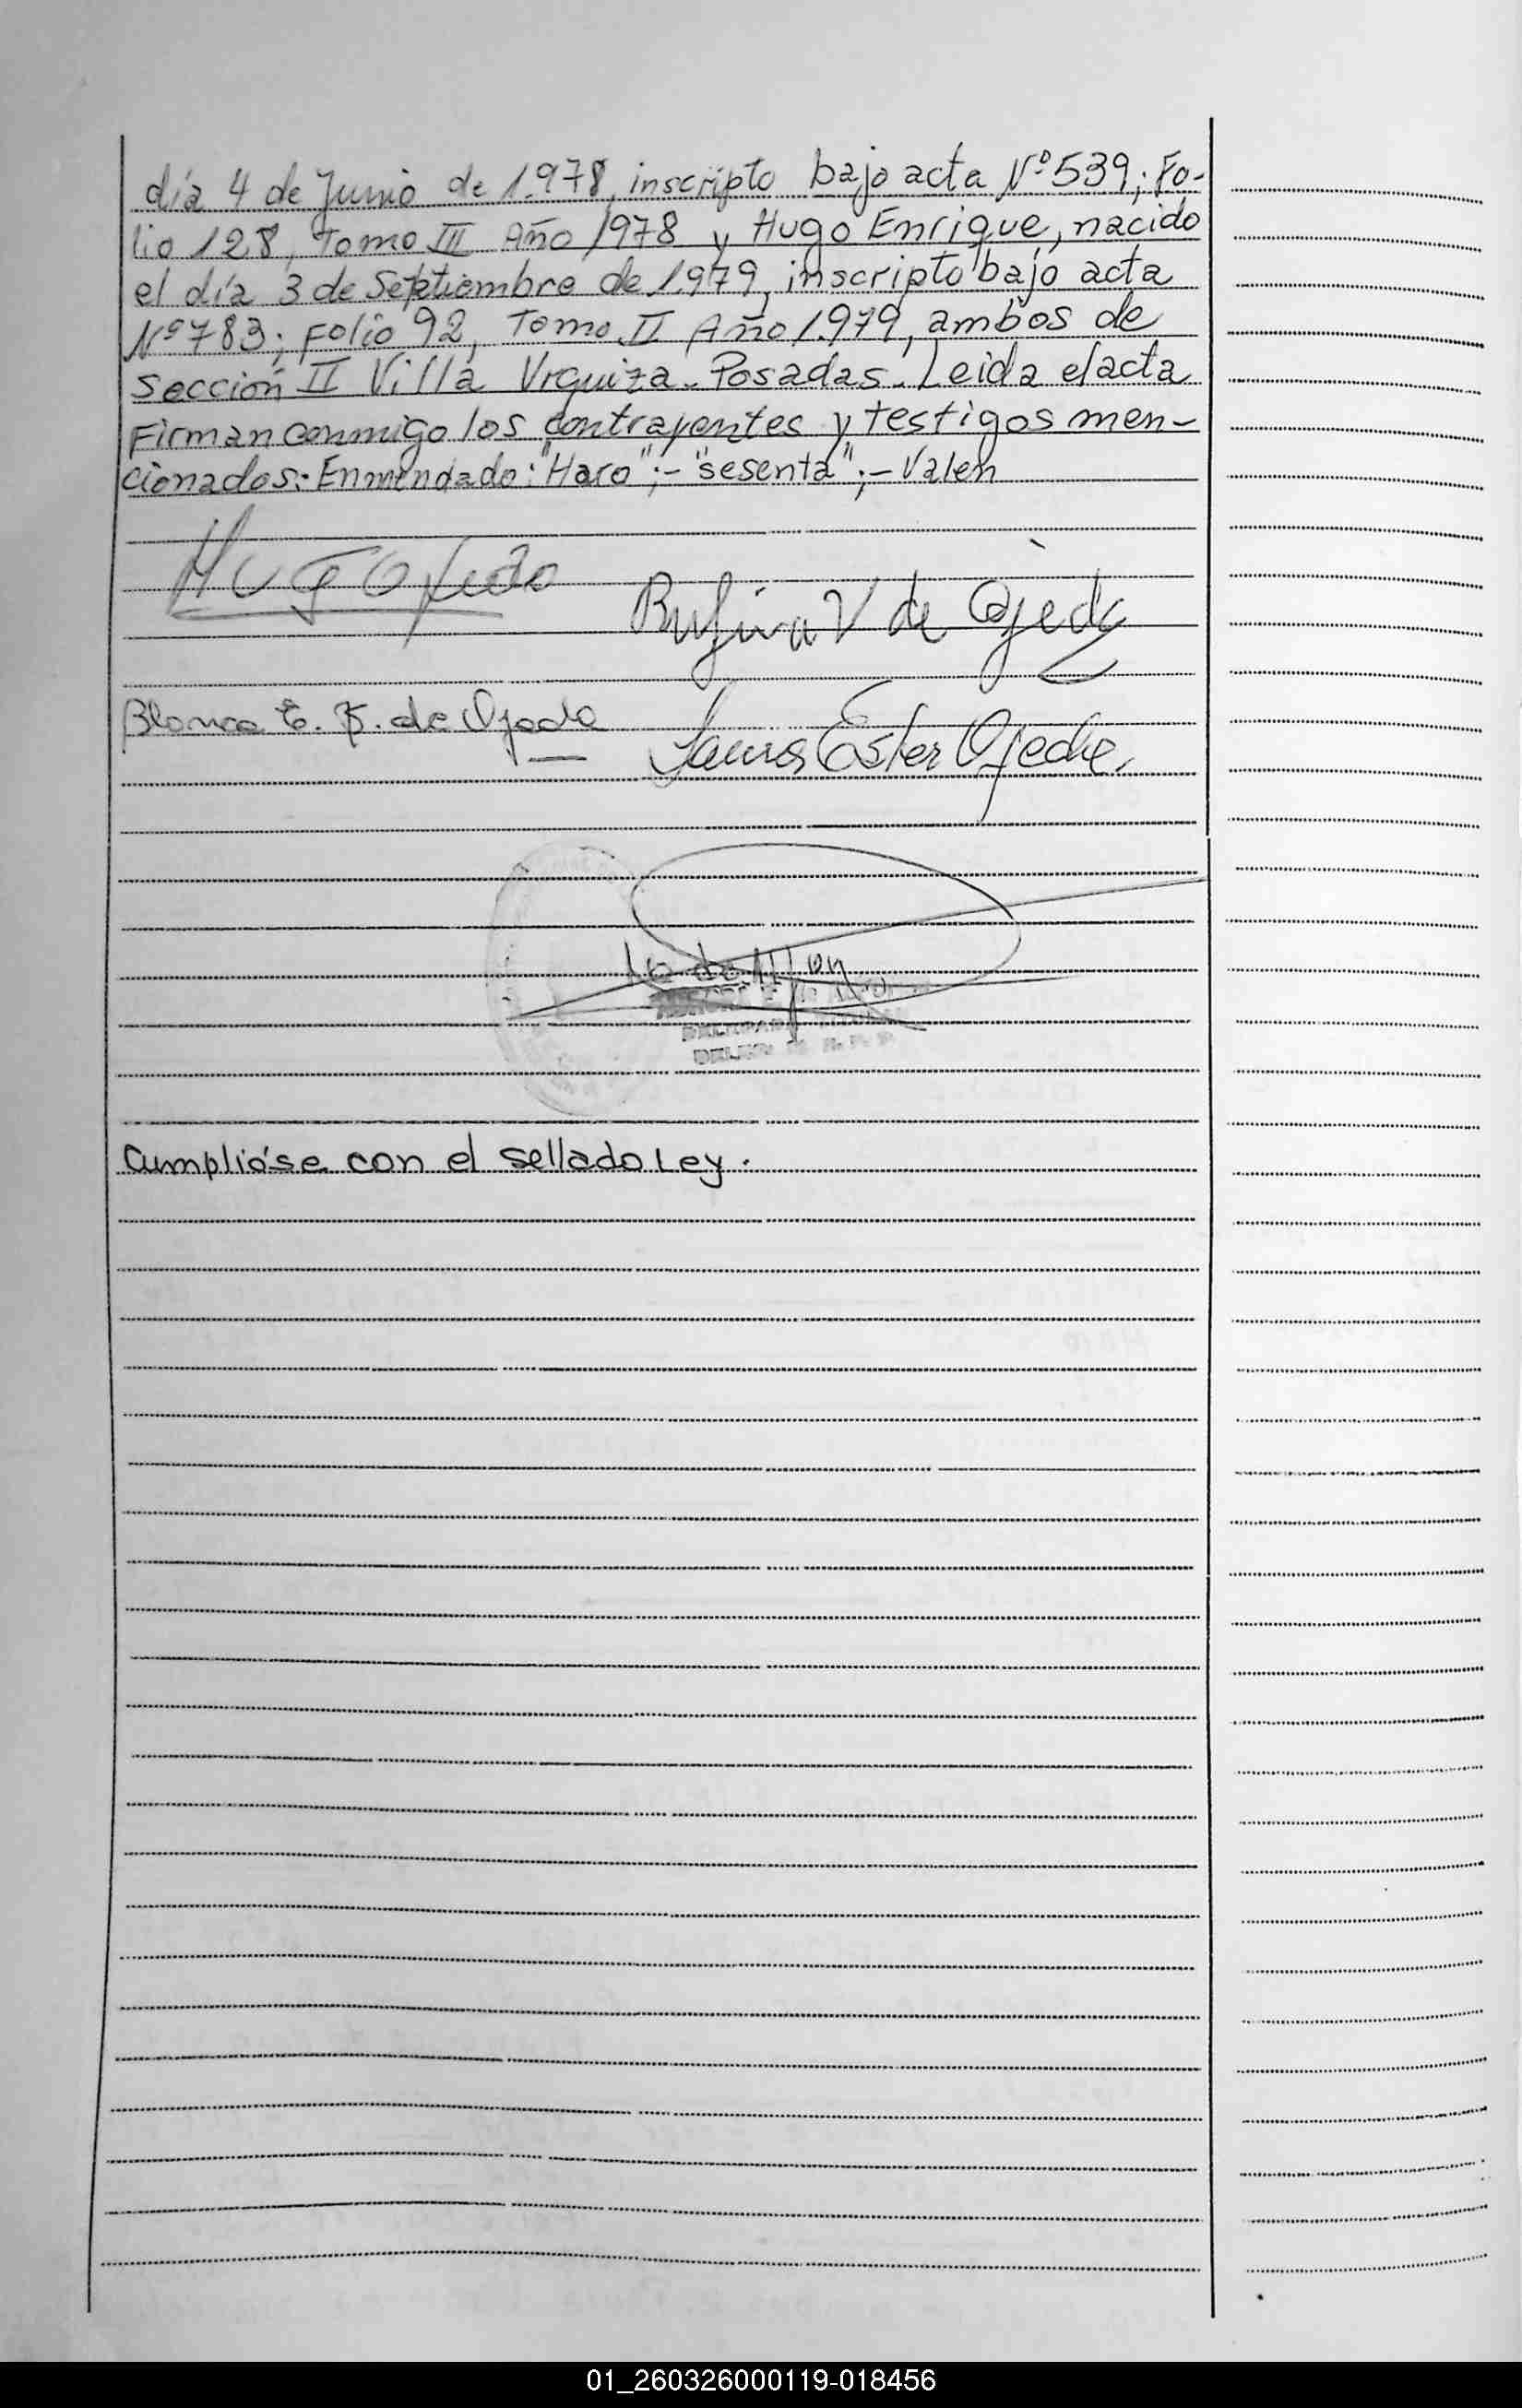 día 4 de Junio de 1.978, inscripto bajo acta Nº 539; Fo-
lio 128, Tomo III Año 1978 y Hugo Enrique, nacido
el día 3 de Septiembre de 1.979, inscripto bajo acta
Nº 783; Folio 92, Tomo II Año 1.979, ambos de
Sección II Villa Urquiza - Posadas. Leida el acta
Firman conmigo los contrayentes y testigos men-
cionados: Enmendado: "Haro"; - "sesenta"; - Valen
Hugo Ojeda
Rufina V de Ojeda
Blanca E. K. de Ojeda
Laura Ester Ojeda.
DELEGADA TITULAR
Cumplióse con el sellado Ley.
01_260326000119-018456